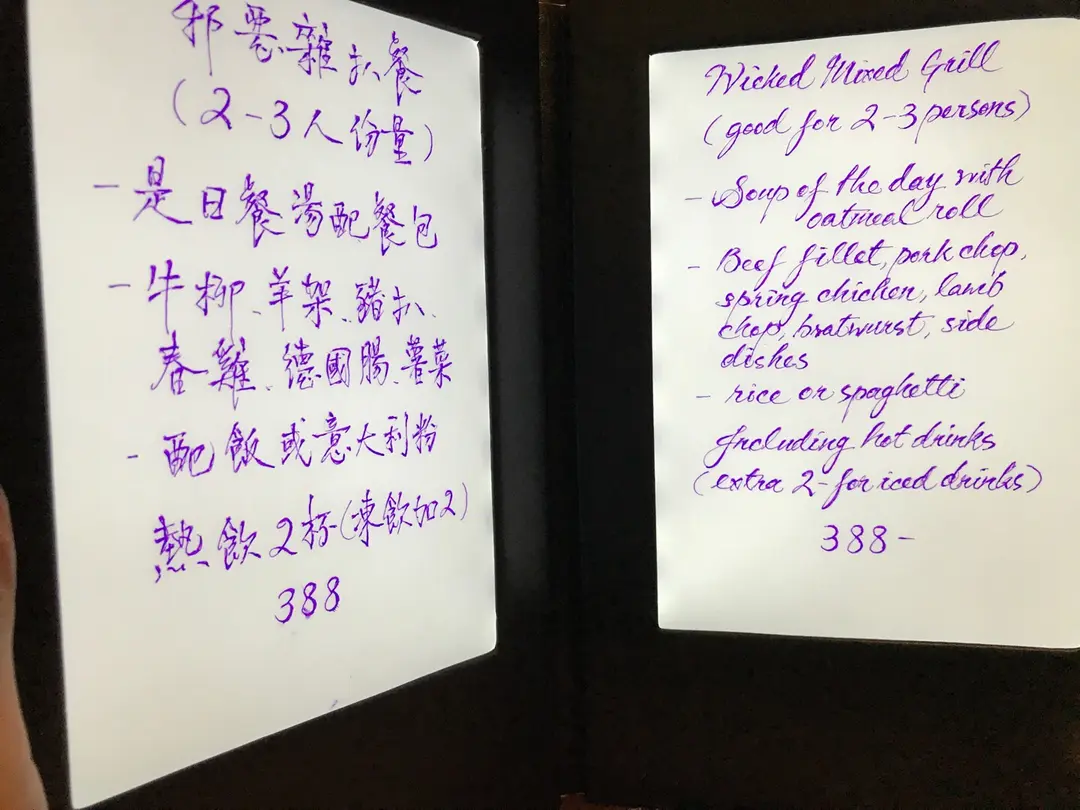 邪惡雜扒餐
(2-3人份量)
- 是日餐湯配餐包
- 牛柳、羊架、豬扒、
春雞、德國腸、薯菜
- 配飯或意大利粉
熱飲2杯(凍飲加2)
388
Wicked Mixed Grill
(good for 2-3 persons)
- Soup of the day with
oatmeal roll
- Beef fillet, pork chop,
spring chicken, lamb
chop, bratwurst, side
dishes
- rice or spaghetti
Including hot drinks
(extra 2- for iced drinks)
388-